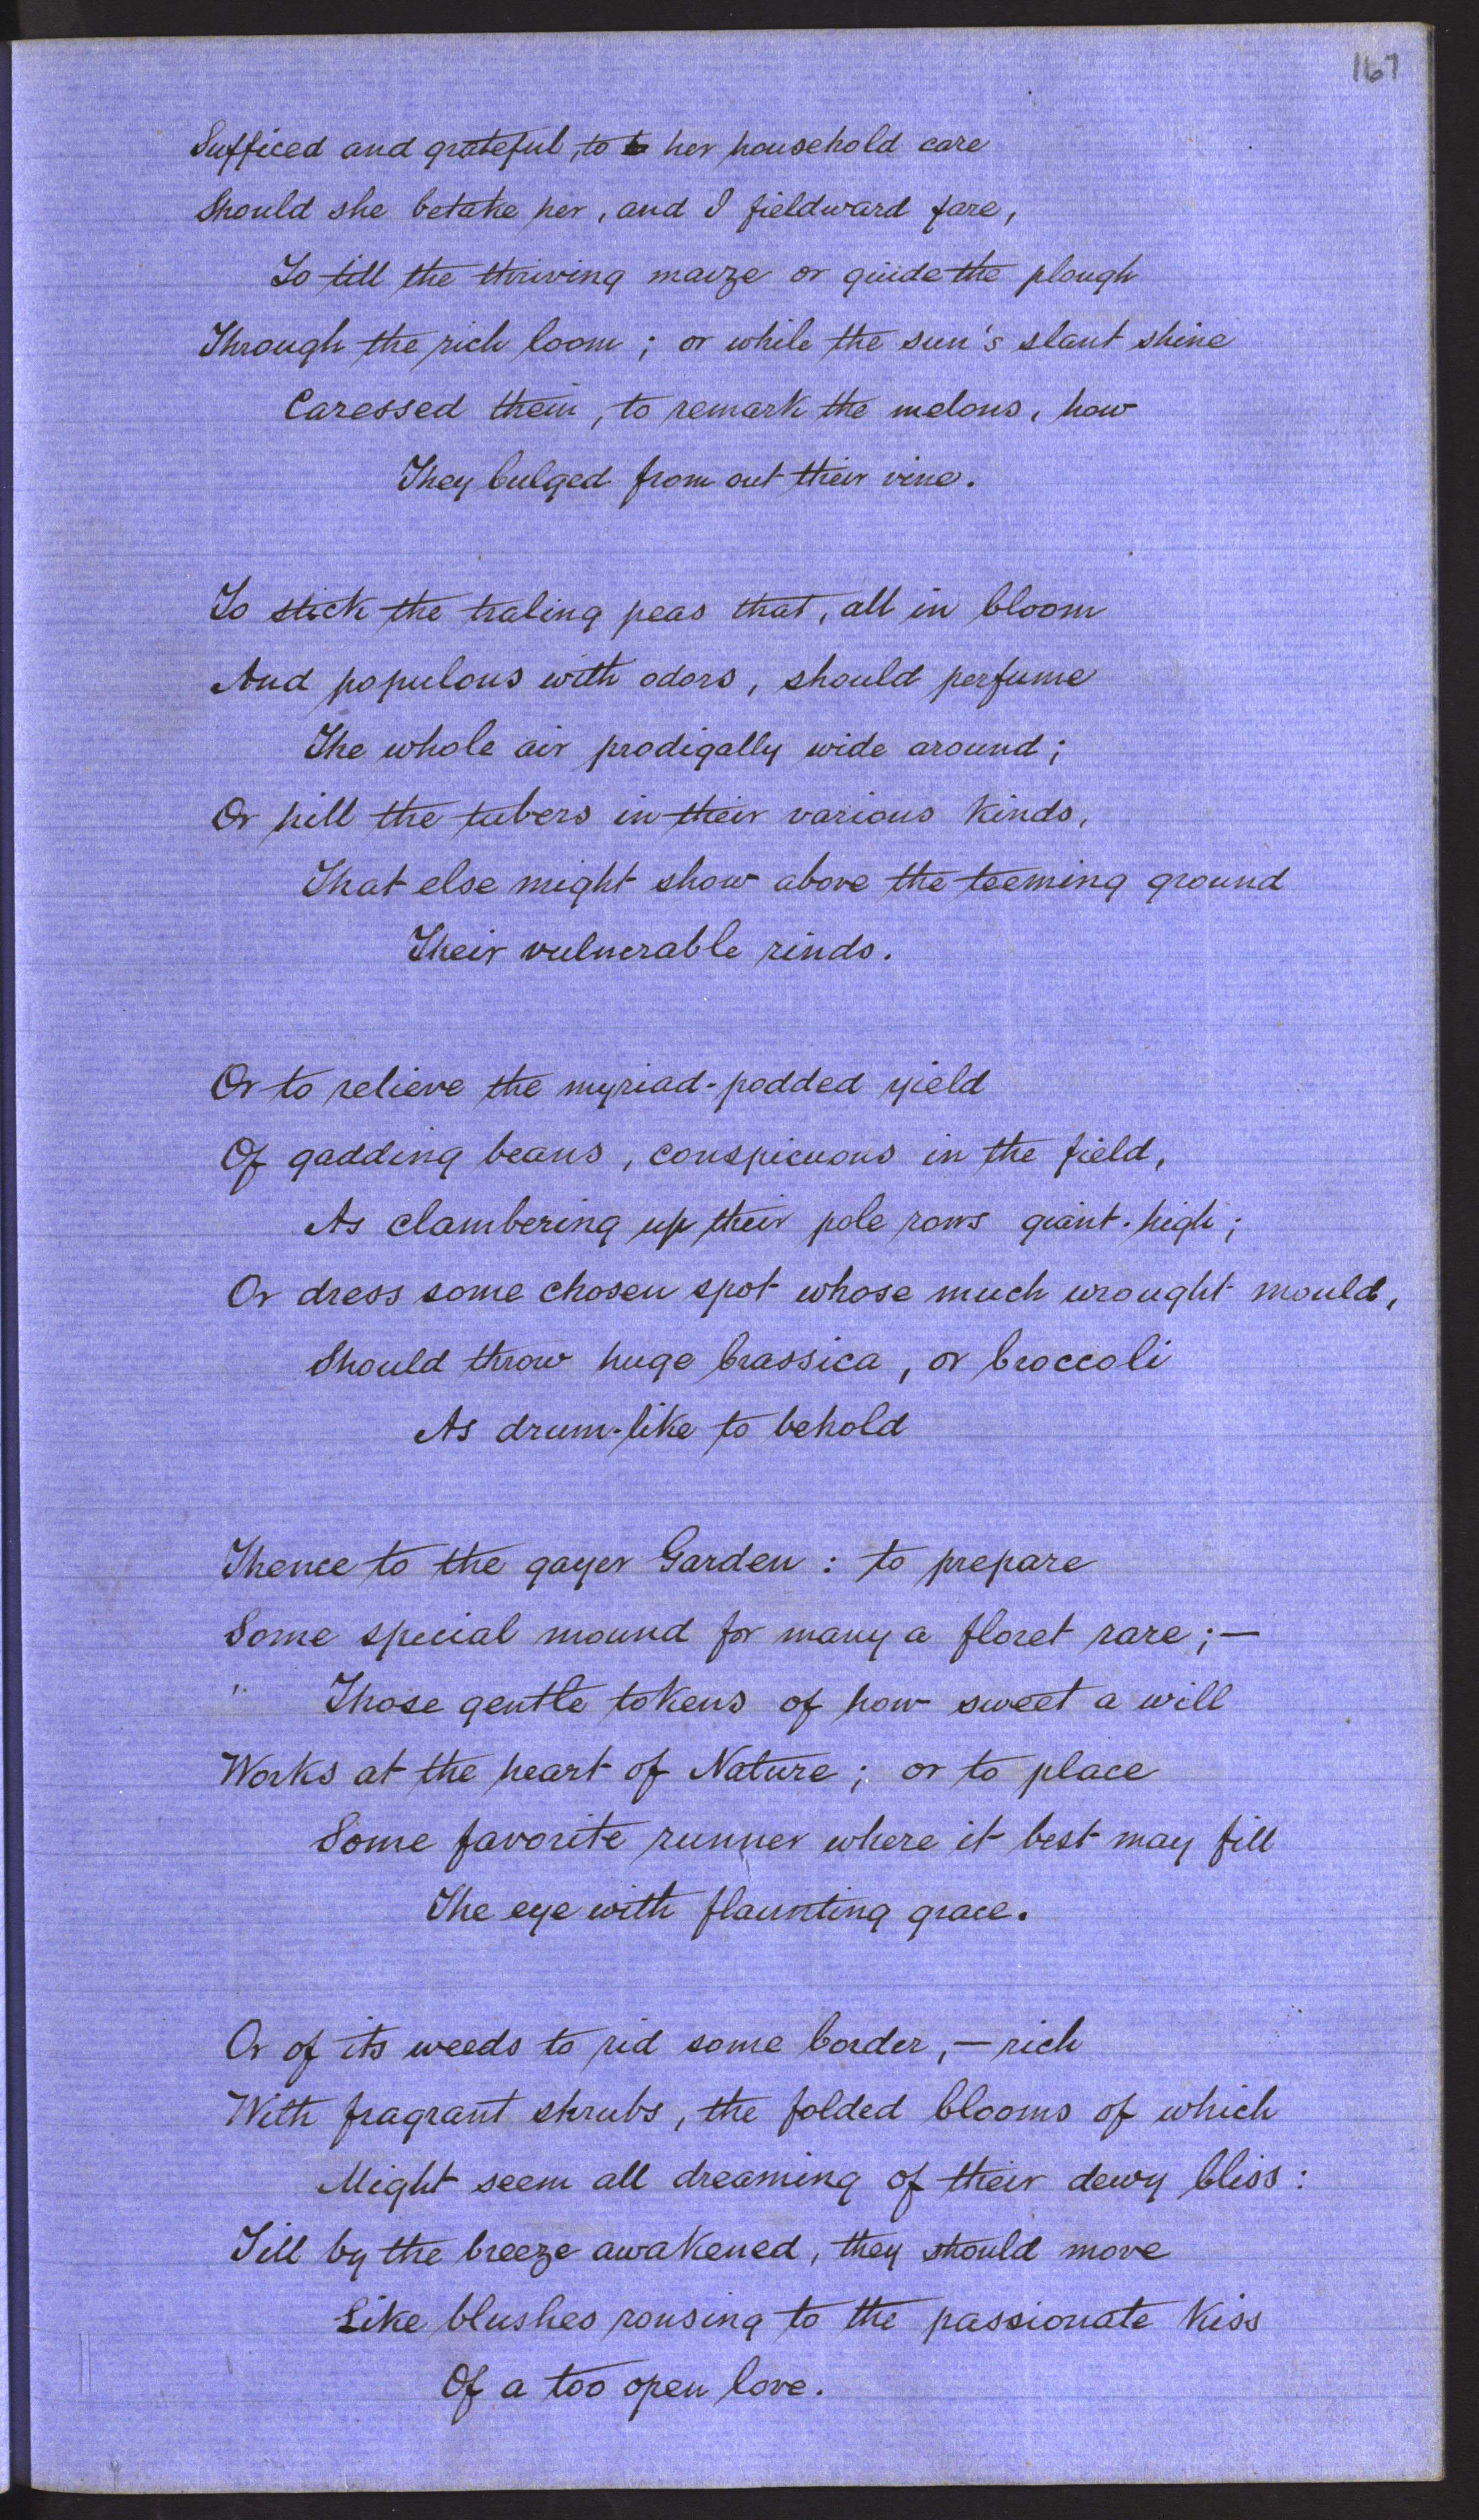 167
Sufficed and grateful, to her household care
Should she betake her, and I fieldward fare,
To till the thriving maize or guide the plough
Through the rich loom; or while the sun's slant shine
Caressed them, to remark the melons, how
They bulged from out their vine.
To stick the traling peas that, all in bloom
And populous with odors, should perfume
The whole air prodigally wide around;
Or hill the tubers in their various kinds,
That else might show above the teeming ground
Their vulnerable rinds.
Or to relieve the myriad-podded yield
Of gadding beans, conspicuous in the field,
As clambering up their pole rows giant-high;
Or dress some chosen spot whose much wrought mould,
Should throw huge brassica, or broccoli
As drum-like to behold
Thence to the gayer Garden: to prepare
Some special mound for many a floret rare;—
Those gentle tokens of how sweet a will
Works at the heart of Nature; or to place
Some favorite runner where it best may fill
The eye with flaunting grace.
Or of its weeds to rid some border,—rich
With fragrant shrubs, the folded blooms of which
Might seem all dreaming of their dewy bliss:
Till by the breeze awakened, they should move
Like blushes rousing to the passionate kiss
Of a too open love.